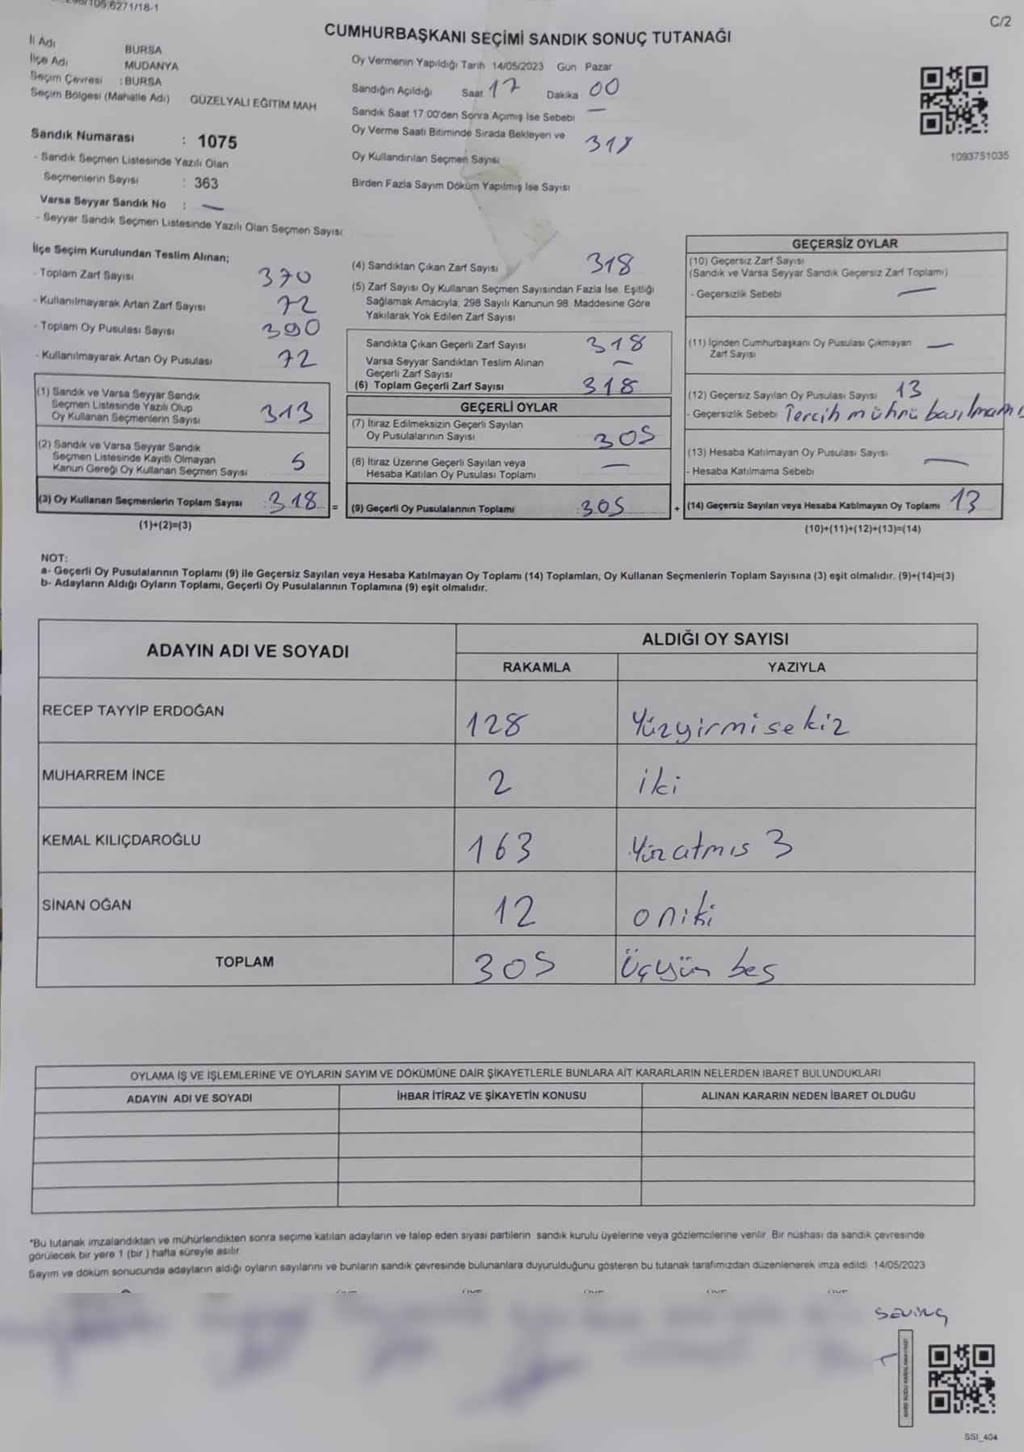 C/2
CUMHURBAŞKANI SEÇİMİ SANDIK SONUÇ TUTANAĞI
İl Adı BURSA
İlçe Adı MUDANYA
Seçim Çevresi : BURSA
Seçim Bölgesi (Mahalle Adı) GÜZELYALI EĞİTİM MAH
Sandık Numarası : 1075
- Sandık Seçmen Listesinde Yazılı Olan
Seçmenlerin Sayısı : 363
Varsa Seyyar Sandık No : —
- Seyyar Sandık Seçmen Listesinde Yazılı Olan Seçmen Sayısı:
Oy Vermenin Yapıldığı Tarih 14/05/2023 Gün Pazar
Sandığın Açıldığı Saat 17 Dakika 00
Sandık Saat 17:00'den Sonra Açımış İse Sebebi —
Oy Verme Saati Bitiminde Sırada Bekleyen ve 318
Oy Kullandırılan Seçmen Sayısı
Birden Fazla Sayım Döküm Yapılmış İse Sayısı
1093751035
İlçe Seçim Kurulundan Teslim Alınan;
- Toplam Zarf Sayısı 370
- Kullanılmayarak Artan Zarf Sayısı 72
- Toplam Oy Pusulası Sayısı 390
- Kullanılmayarak Artan Oy Pusulası 72
(1) Sandık ve Varsa Seyyar Sandık
Seçmen Listesinde Yazılı Olup
Oy Kullanan Seçmenlerin Sayısı 313
(2) Sandık ve Varsa Seyyar Sandık
Seçmen Listesinde Kayıtlı Olmayan
Kanun Gereği Oy Kullanan Seçmen Sayısı 5
(3) Oy Kullanan Seçmenlerin Toplam Sayısı 318 =
(1)+(2)=(3)
(4) Sandıktan Çıkan Zarf Sayısı 318
(5) Zarf Sayısı Oy Kullanan Seçmen Sayısından Fazla İse. Eşitliği
Sağlamak Amacıyla; 298 Sayılı Kanunun 98. Maddesine Göre
Yakılarak Yok Edilen Zarf Sayısı
Sandıkta Çıkan Geçerli Zarf Sayısı 318
Varsa Seyyar Sandıktan Teslim Alınan —
Geçerli Zarf Sayısı
(6) Toplam Geçerli Zarf Sayısı 318
GEÇERLİ OYLAR
(7) İtiraz Edilmeksizin Geçerli Sayılan
Oy Pusulalarının Sayısı 305
(8) İtiraz Üzerine Geçerli Sayılan veya —
Hesaba Katılan Oy Pusulası Toplamı
(9) Geçerli Oy Pusulalarının Toplamı 305 +
GEÇERSİZ OYLAR
(10) Geçersiz Zarf Sayısı
(Sandık ve Varsa Seyyar Sandık Geçersiz Zarf Toplamı)
- Geçersizlik Sebebi —
(11) İçinden Cumhurbaşkanı Oy Pusulası Çıkmayan —
Zarf Sayısı
(12) Geçersiz Sayılan Oy Pusulası Sayısı 13
- Geçersizlik Sebebi Tercih mührü basılmamış
(13) Hesaba Katılmayan Oy Pusulası Sayısı —
- Hesaba Katılmama Sebebi
(14) Geçersiz Sayılan veya Hesaba Katılmayan Oy Toplamı 13
(10)+(11)+(12)+(13)=(14)
NOT:
a- Geçerli Oy Pusulalarının Toplamı (9) ile Geçersiz Sayılan veya Hesaba Katılmayan Oy Toplamı (14) Toplamları, Oy Kullanan Seçmenlerin Toplam Sayısına (3) eşit olmalıdır. (9)+(14)=(3)
b- Adayların Aldığı Oyların Toplamı, Geçerli Oy Pusulalarının Toplamına (9) eşit olmalıdır.
ADAYIN ADI VE SOYADI ALDIĞI OY SAYISI
RAKAMLA YAZIYLA
RECEP TAYYİP ERDOĞAN 128 Yüzyirmisekiz
MUHARREM İNCE 2 iki
KEMAL KILIÇDAROĞLU 163 Yüzatmıs 3
SİNAN OĞAN 12 oniki
TOPLAM 305 Üçyüz beş
OYLAMA İŞ VE İŞLEMLERİNE VE OYLARIN SAYIM VE DÖKÜMÜNE DAİR ŞİKAYETLERLE BUNLARA AİT KARARLARIN NELERDEN İBARET BULUNDUKLARI
ADAYIN ADI VE SOYADI İHBAR İTİRAZ VE ŞİKAYETİN KONUSU ALINAN KARARIN NEDEN İBARET OLDUĞU
*Bu tutanak imzalandıktan ve mühürlendikten sonra seçime katılan adayların ve talep eden siyasi partilerin sandık kurulu üyelerine veya gözlemcilerine verilir. Bir nüshası da sandık çevresinde
görülecek bir yere 1 (bir) hafta süreyle asılır.
Sayım ve döküm sonucunda adayların aldığı oyların sayılarını ve bunların sandık çevresinde bulunanlara duyurulduğunu gösteren bu tutanak tarafımızdan düzenlenerek imza edildi. 14/05/2023
SEVİNÇ
SSI_404